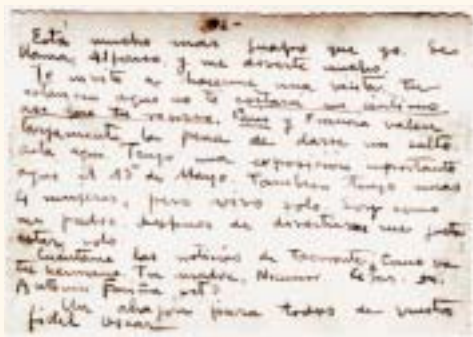 Está mucho mas guapo que yo. Se
llama, Alfonso y me divierte mucho.
Te invito a hacerme una visita. Tu
estancia aqui no te costara un centimo
Paris y Francia valen
largamente la pena de darse un salto
aqui. Tengo una exposicion importante
aqui el 15 de Mayo. Tambien tengo unas
4 mujeres, pero vivo solo. Soy como
mi padre despues de divertirme me gusta
estar solo
Cuentame las noticias de Tacoronte, Como va
tu hermana Tu madre,
Un abrazo para todos de vuestro
fidel Oscar